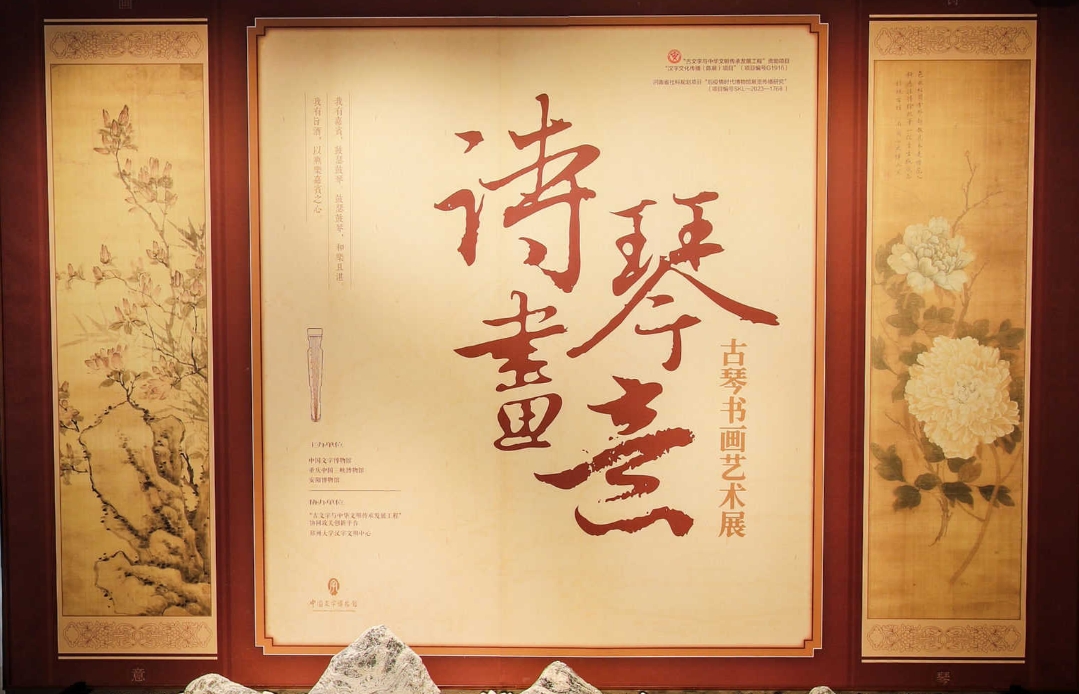 诗琴
畫意
古琴书画艺术展
"古文字与中华文明传承发展工程"资助项目
"汉字文化传播（展演）项目"（项目编号G1910）
（项目编号XKL—2023—1768）
我有嘉宾，鼓瑟鼓琴。鼓瑟鼓琴，和樂且湛。
我有旨酒，以燕樂嘉賓之心。
主办单位：
中国文字博物馆
重庆中国三峡博物馆
安阳博物馆
协办单位：
"古文字与中华文明传承发展工程"
协同攻关创新平台
郑州大学汉字文明中心
中国文字博物馆
意
琴